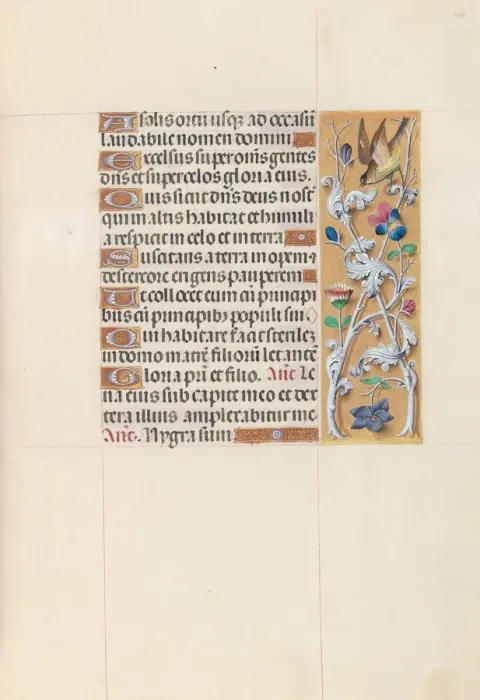 A solis ortu usqz ad occasū
laudabile nomen domini
Excelsus super om̄s gentes
dn̄s et super celos gloria eius.
Quis sicut dn̄s deus nost̄
qui in altis habitat et humili
a respicit in celo et in terra
Suscitans a terra inopem
de stercore erigens pauperem
Ut collocet eum cū principi
bus cū principibꝰ populi sui
Qui habitare facit sterilē
in domo matrē filiorū letantē
Gloria pr̄i et filio. Añe Le
ua eius sub capite meo et dex
tera illius amplexabitur me
Añe. Nygra sum